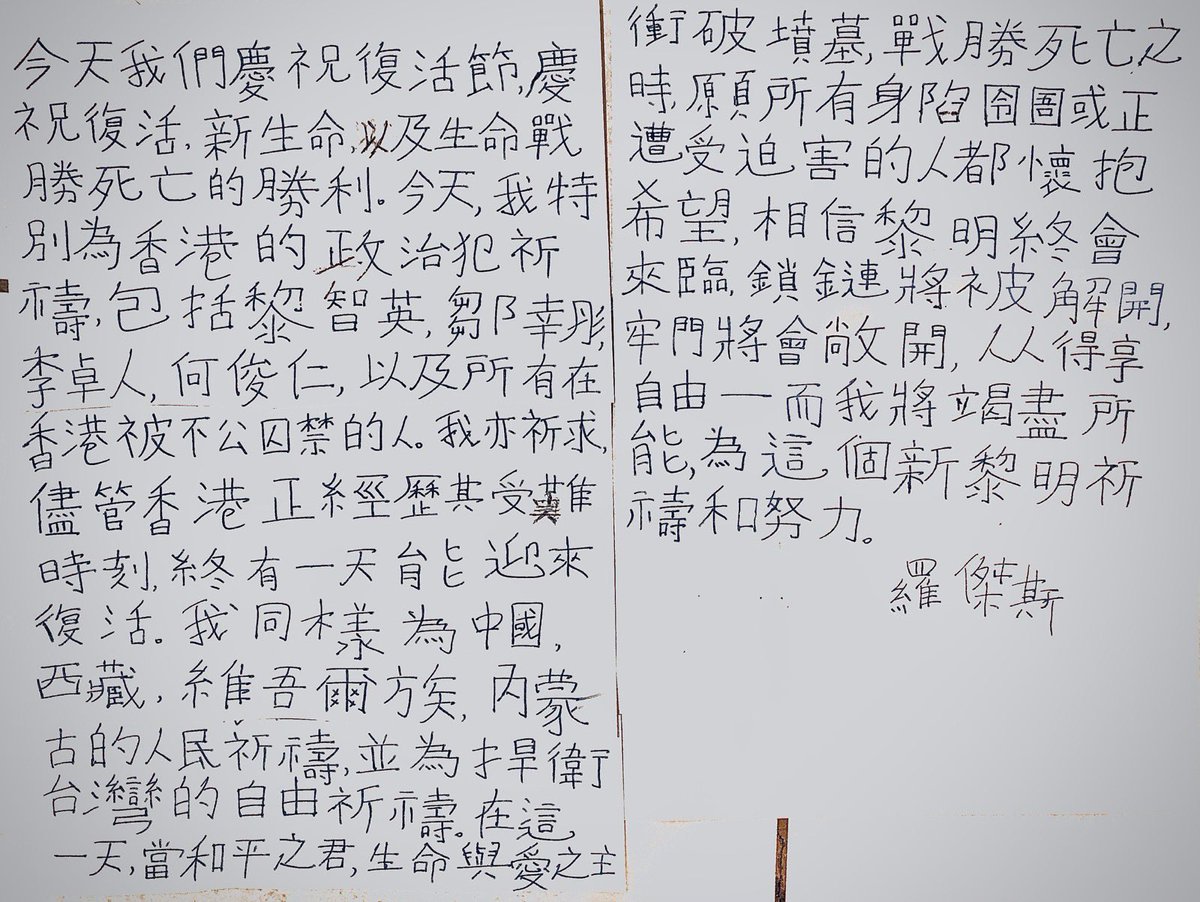 今天我們慶祝復活節,慶
祝復活,新生命,以及生命戰
勝死亡的勝利。今天,我特
別為香港的政治犯祈
禱,包括黎智英,鄒幸彤,
李卓人,何俊仁,以及所有在
香港被不公囚禁的人。我亦祈求,
儘管香港正經歷其受難
時刻,終有一天能迎來
復活。我同樣為中國,
西藏,維吾爾族,內蒙
古的人民祈禱,並為捍衛
台灣的自由祈禱。在這
一天,當和平之君,生命與愛之主
衝破墳墓,戰勝死亡之
時,願所有身陷囹圄或正
遭受迫害的人都懷抱
希望,相信黎明終會
來臨,鎖鏈將被解開,
牢門將會敞開,人人得享
自由一而我將竭盡所
能,為這個新黎明祈
禱和努力。
羅傑斯